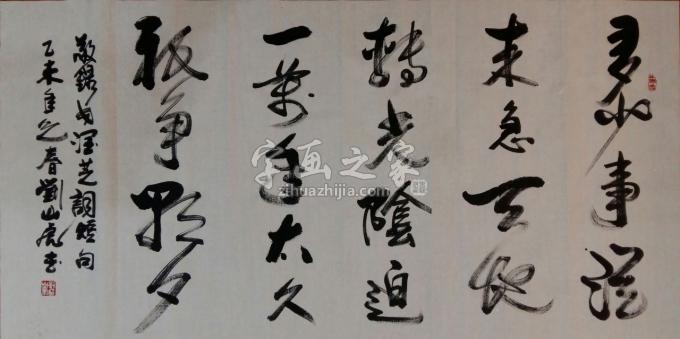 多少事從
来急天地
轉光陰迫
一萬年太久
祇争朝夕
敬録毛潤芝詞短句
乙未年之春劉山虎書
字画之家
zihuazhijia.com